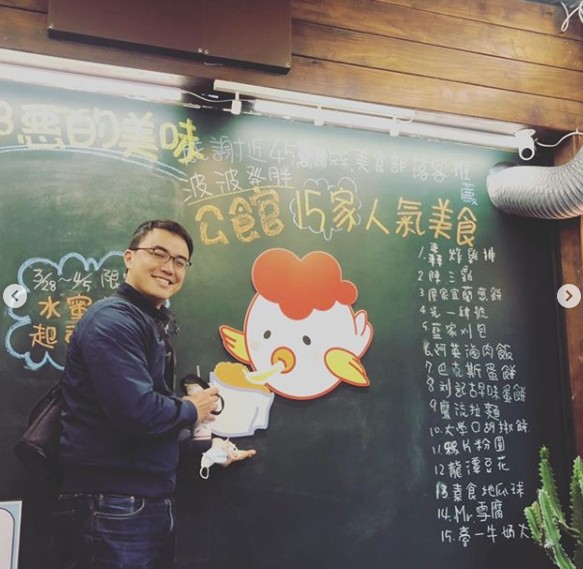 惡的美味
感謝近45個網路美食部落客推薦
波波登勝
公館15家人氣美食
3/28~4/5 限
水蜜
起司
1. 轟炸雞排
2 陳三鼎
3 周家宜蘭蔥餅
4. 光一肆號
5. 藍家刈包
6. 阿英滷肉飯
7. 巴克斯蛋餅
8 劉記古早味蛋餅
9. 鷹流拉麵
10. 大學口胡椒餅
11. 鴉片粉圓
12 龍潭豆花
13 素食地瓜球
14. Mr. 雪腐
15. 臺一牛奶大